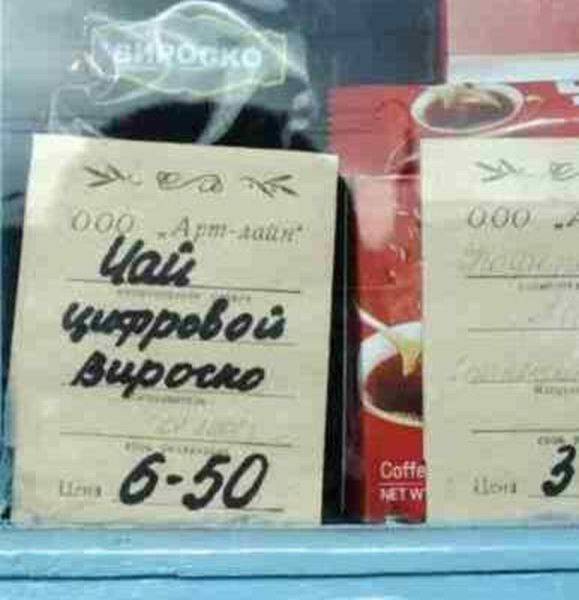 ВИРОСКО
ООО „Арт-лайн"
Чай
цифровой
Вироско
Цена 6-50
Coffe
NET W
ООО „А
Цена 3